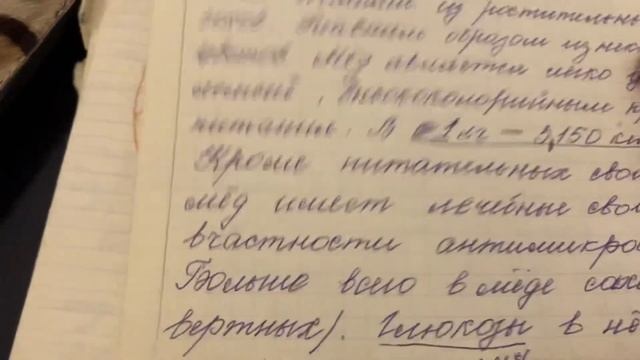 из растительн
образом из нек
мёд является легко
высококалорийным
питания. В 1 кг - 3,150 к
Кроме питательных сво
мёд имеет лечебные сво
вчастности антимикро
Больше всего в мёде саха
вертных). Глюкозы в нё